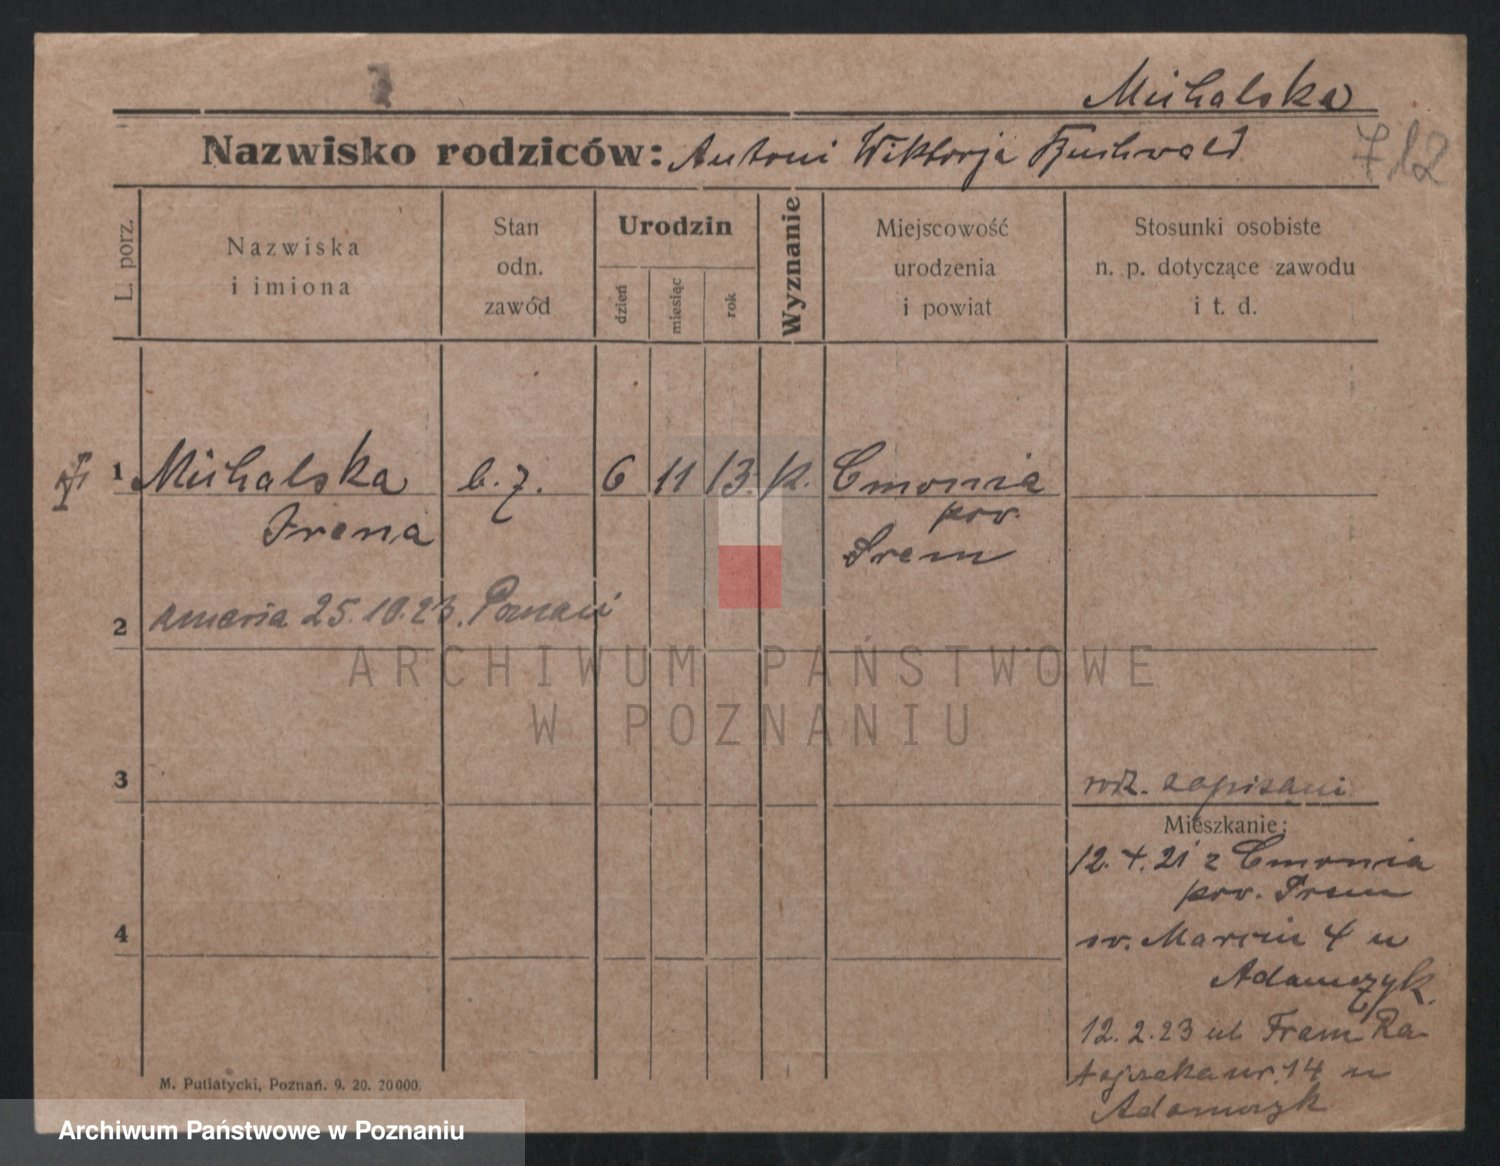 Michalska
Nazwisko rodziców: Antoni Wiktorja Buchwald
712
L. porz.
Nazwiska
i imiona
Stan
odn.
zawód
Urodzin
dzień
miesiąc
rok
Wyznanie
Miejscowość
urodzenia
i powiat
Stosunki osobiste
n. p. dotyczące zawodu
i t. d.
1 Michalska b. z. 6 11 13. k. Cmonia
Irena pow.
Srem
2 25.10.23. Poznań
ARCHIWUM PAŃSTWOWE
W POZNANIU
3
rodz. zapisani
Mieszkanie:
12. 4. 21 z Cmonia
pow. Srem
4
sw. Marcin 4 u
Adamczyk.
12. 2. 23 ul. Fran. Ra-
tajczaka nr. 14 u
Adamczyk
M. Putiatycki, Poznań. 9. 20. 20000.
Archiwum Państwowe w Poznaniu